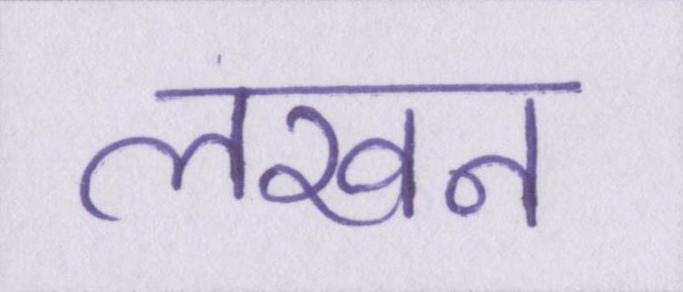 लखन